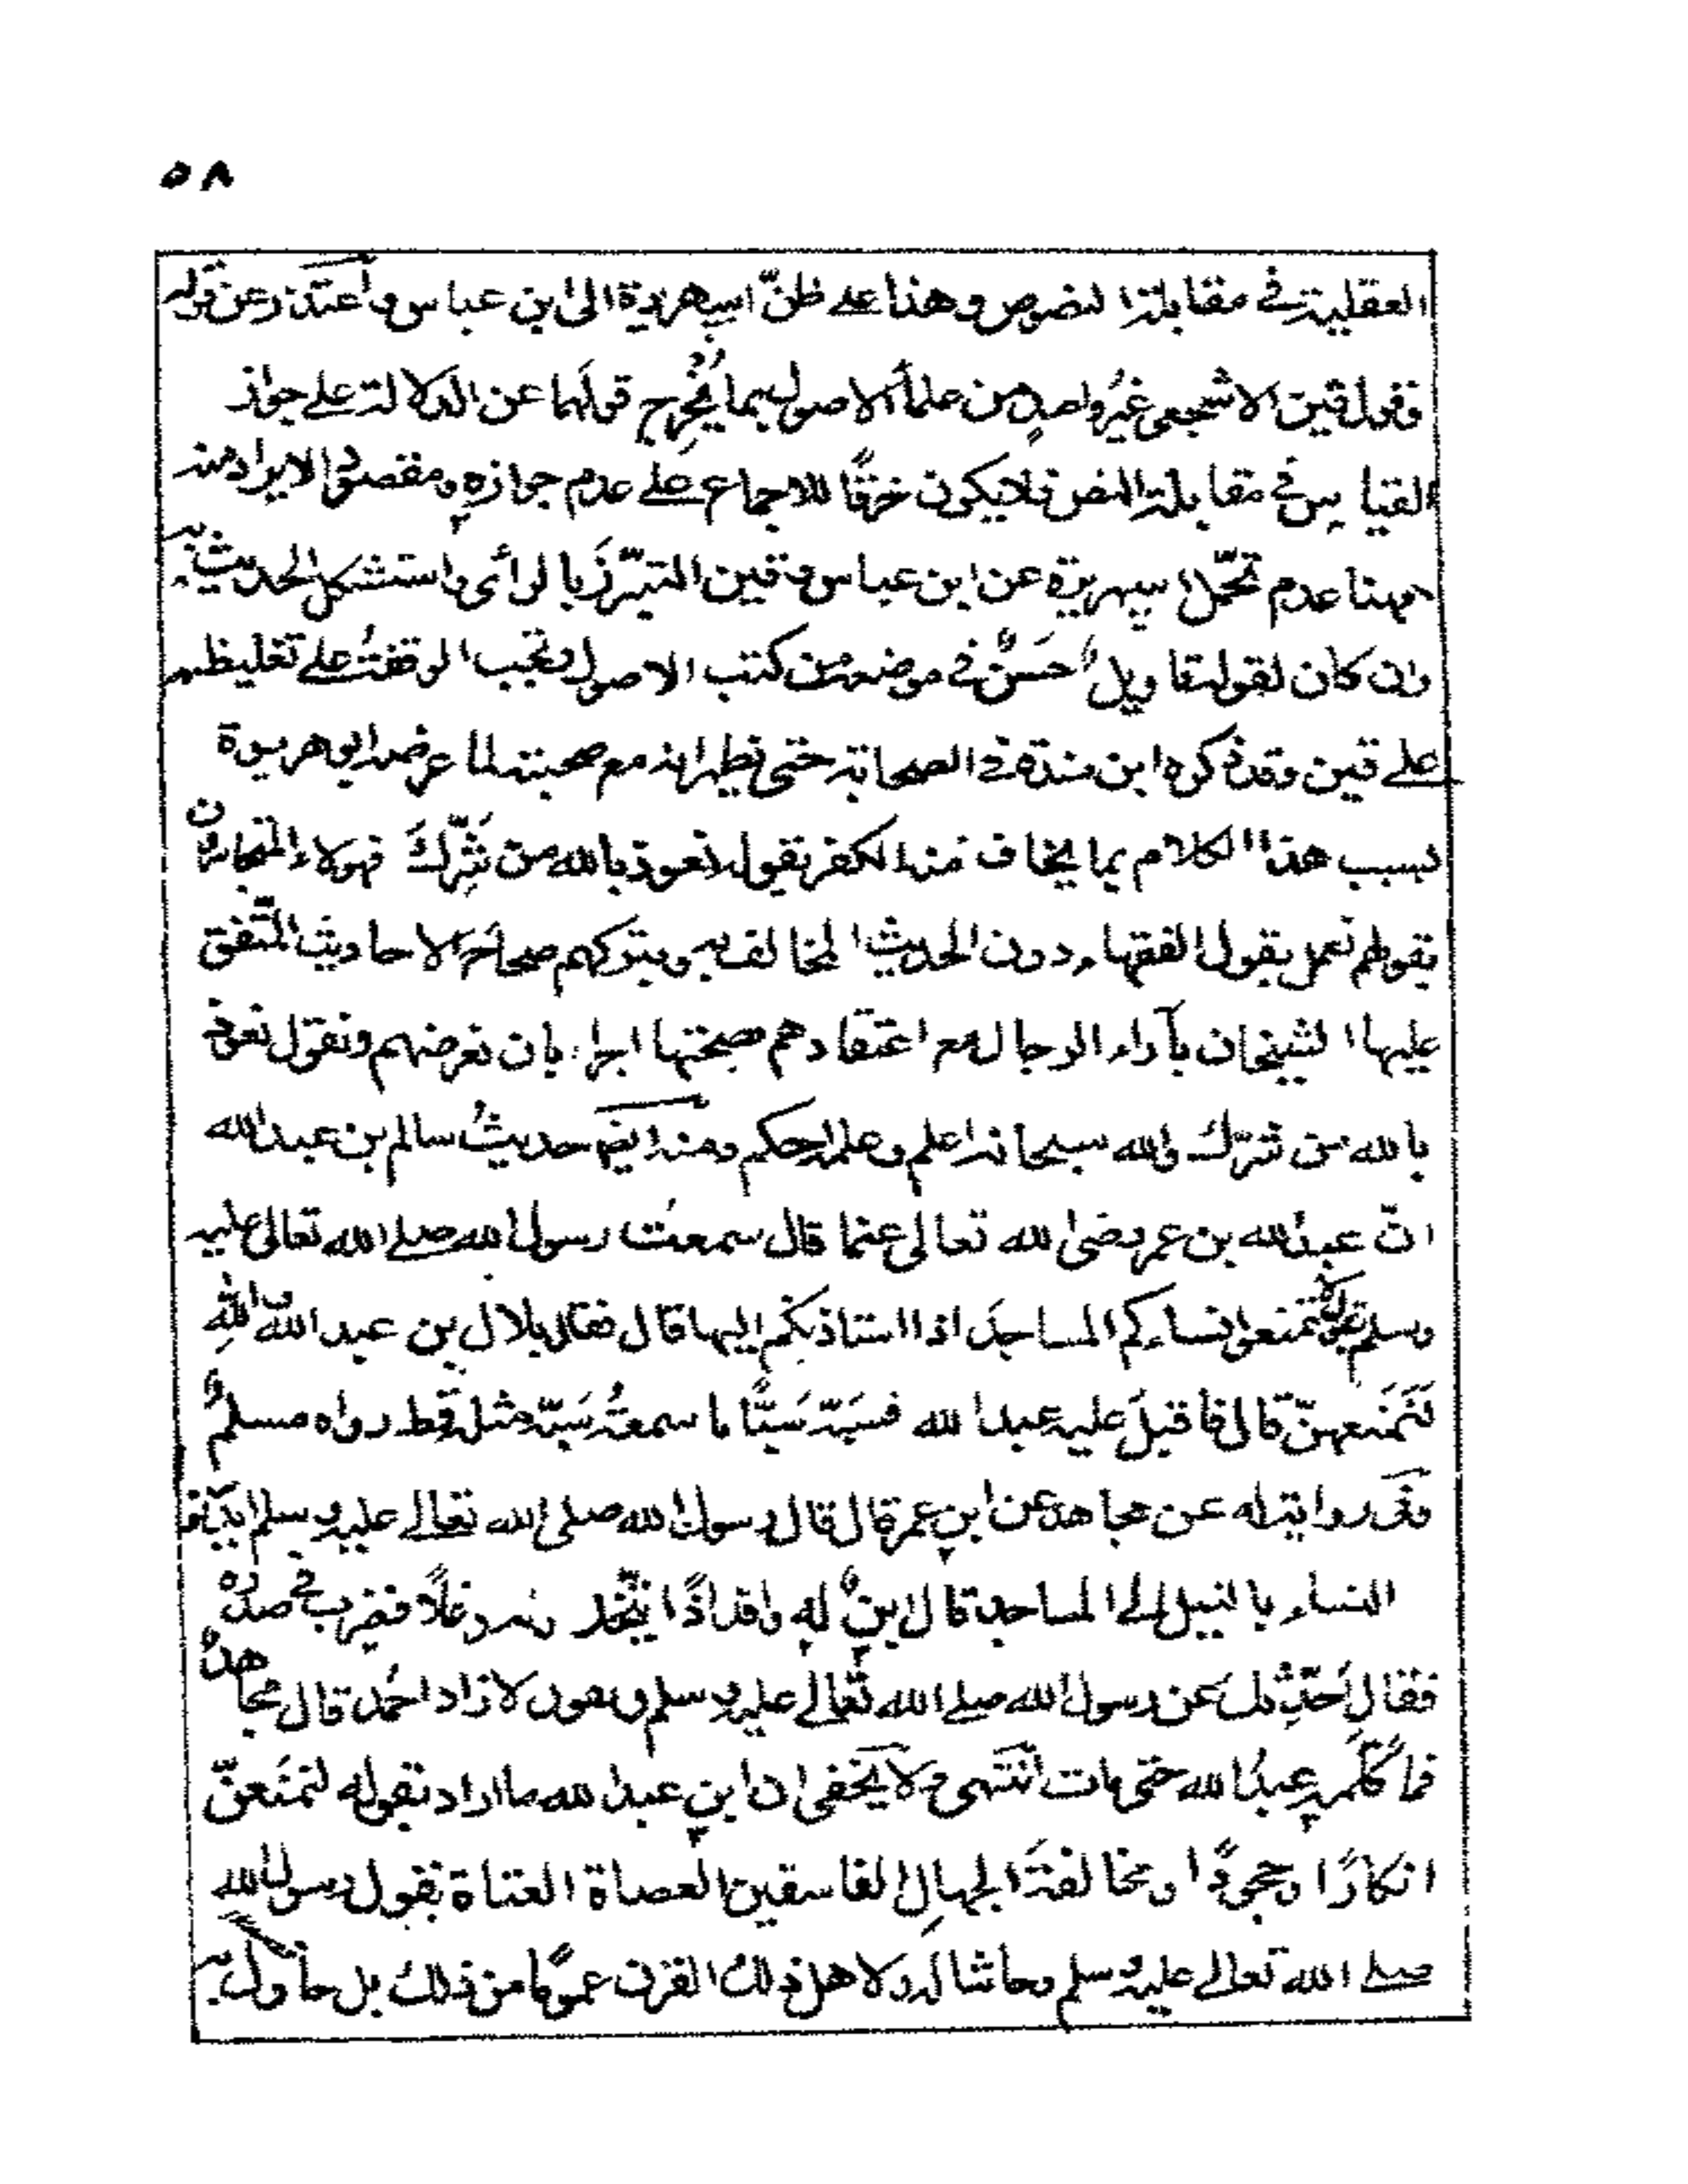 ٥٨
العقلية في مقابلة النصوص وهذا على ظنّ ابي هريرة الى ابن عباس واعتذر عن قوله
وقول قين الاشجعي غيرُ واحدٍ من علماء الاصول بما يُخْرِج قولَهما عن الدلالة على جواز
القياس في مقابلة النص فلا يكون خرقًا للاجماع على عدم جوازه ومقصودُ الايراد منه
ههنا عدم تحمّل ابي هريرة عن ابن عباس وقين المتبرّزَ بالرأى واستشكل الحديث به
وان كان لقوله تاويلٌ حسَنٌ في موضعه من كتب الاصول وتجب الوقفتُ على تغليظه
على قين وقد ذكره ابن مندة في الصحابة حتى يظهر انه مع صحبته لما عرضه ابو هريرة
بسبب هذا الكلام بما يخاف منه الكفر بقوله نعوذ بالله من شرّك فهولاء المتجاسرون
بقولهم نعمل بقول الفقهاء دون الحديث المخالف به وبتركهم صحاحَ الاحاديث المتّفق
عليها الشيخان بآراء الرجال مع اعتقادهم صحتها اجراء بان نعرضهم ونقول نعوذ
بالله من شرّك والله سبحانه اعلم وعلمه احكم ومنه ايضا حديثُ سالم بن عبد الله
انّ عبد الله بن عمر رضى الله تعالى عنهما قال سمعتُ رسول الله صلى الله تعالى عليه
وسلم يقول لا تمنعوا نساءكم المساجدَ اذا استاذنكم اليها قال فقال بلال بن عبد الله واللّهِ
لَنَمنَعهنّ قال فاقبلَ عليه عبد الله فسبّه سَبًّا ما سمعتُه سَبّه مثله قط رواه مسلمٌ
وفى رواية له عن مجاهد عن ابن عمر قال قال رسول الله صلى الله تعالى عليه وسلم ايذنوا
النساء بالليل الى المساجد قال ابنٌ له واقد اذًا يتّخذنه دغلًا فضرب في صدره
فقال اُحَدِّثك عن رسول الله صلى الله تعالى عليه وسلم وتقول لا زاد احمد قال مجاهدٌ
فما كلّمه عبدُ الله حتى مات انتهى ولا يخفى ان ابن عبد الله ما اراد بقوله لنمنَعنّ
انكارًا وجحودًا ومخالفةَ الجهالِ الفاسقين العصاة العتاة بقول رسول الله
صلى الله تعالى عليه وسلم وحاشا له ولاهل ذلك القرن عمومًا من ذلك بل حاول به